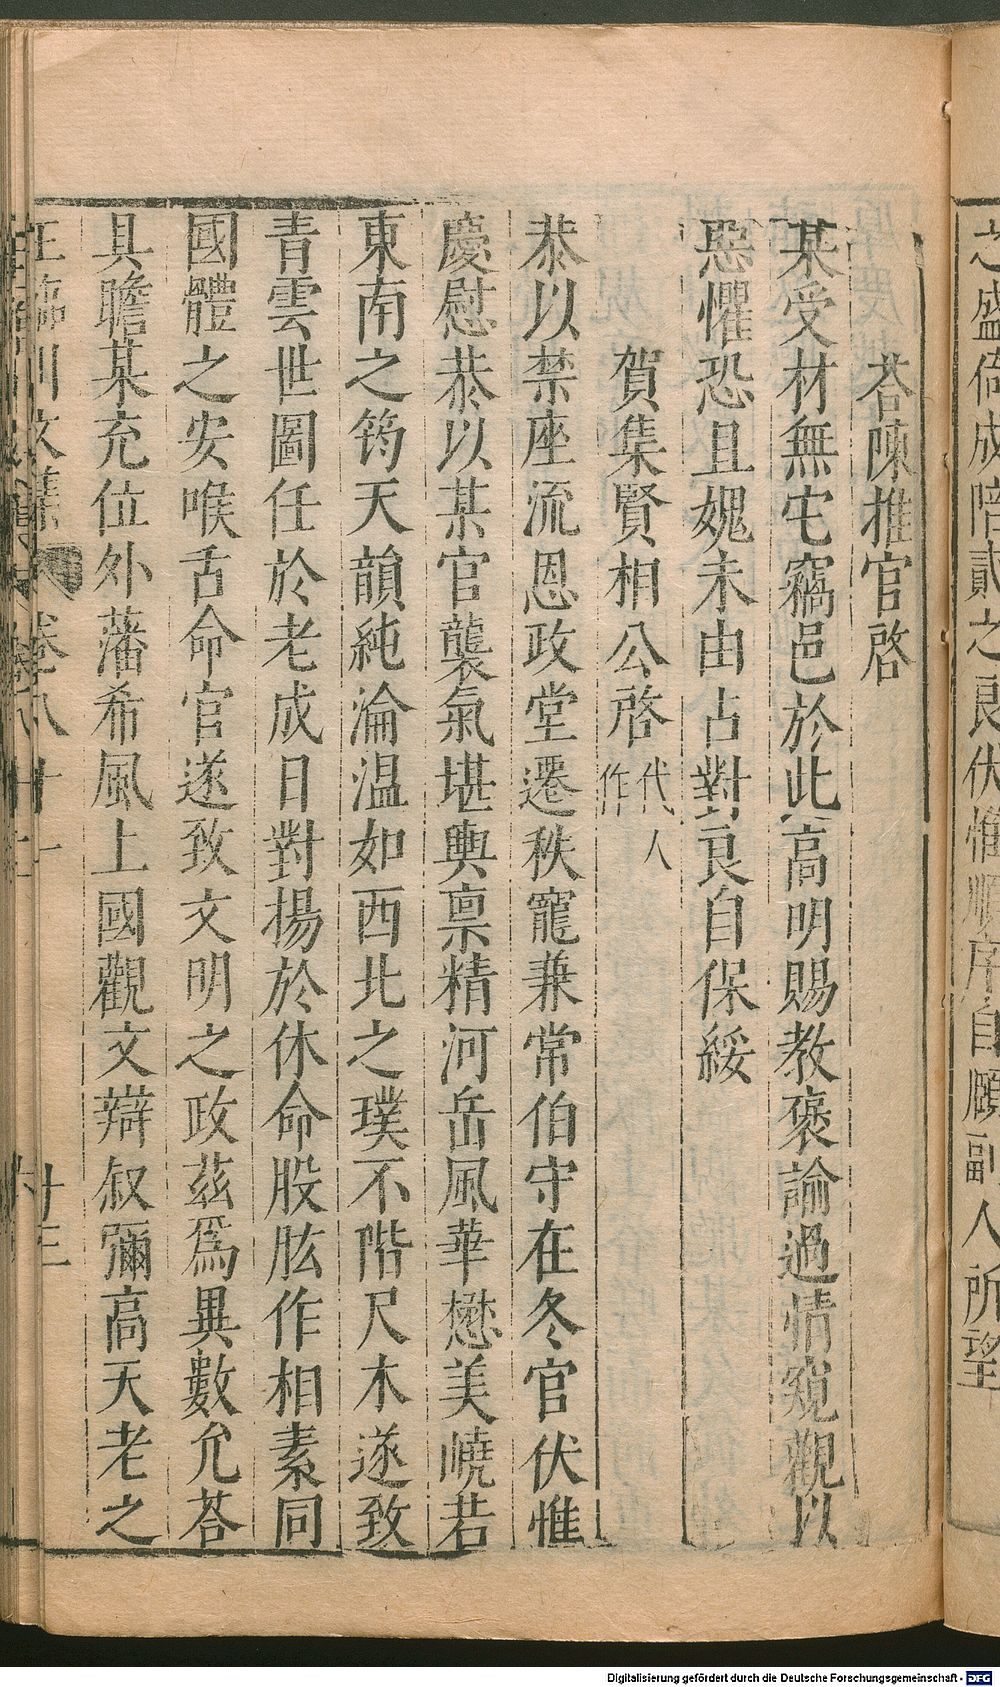 之盛倚成陪貳之良伏惟順序自頤副人所望
荅陳推官啓
某受材無宅竊邑於此高明賜教褒諭過情窺觀以
惡懼恐且媿未由占對良自保綏
賀集賢相公啓代人作
恭以禁座流恩政堂遷秩寵兼常伯守在冬官伏惟
慶慰恭以某官襲氣堪輿禀精河岳風華懋美嶢若
東南之筠天韻純淪温如西北之璞不階尺木遂致
青雲世圖任於老成日對揚於休命股肱作相素同
國體之安喉舌命官遂致文明之政茲爲異數允荅
具瞻某充位外藩希風上國觀文辯叙彌高天老之
王臨川文集 卷八十一 廿三
Digitalisierung gefördert durch die Deutsche Forschungsgemeinschaft - DFG